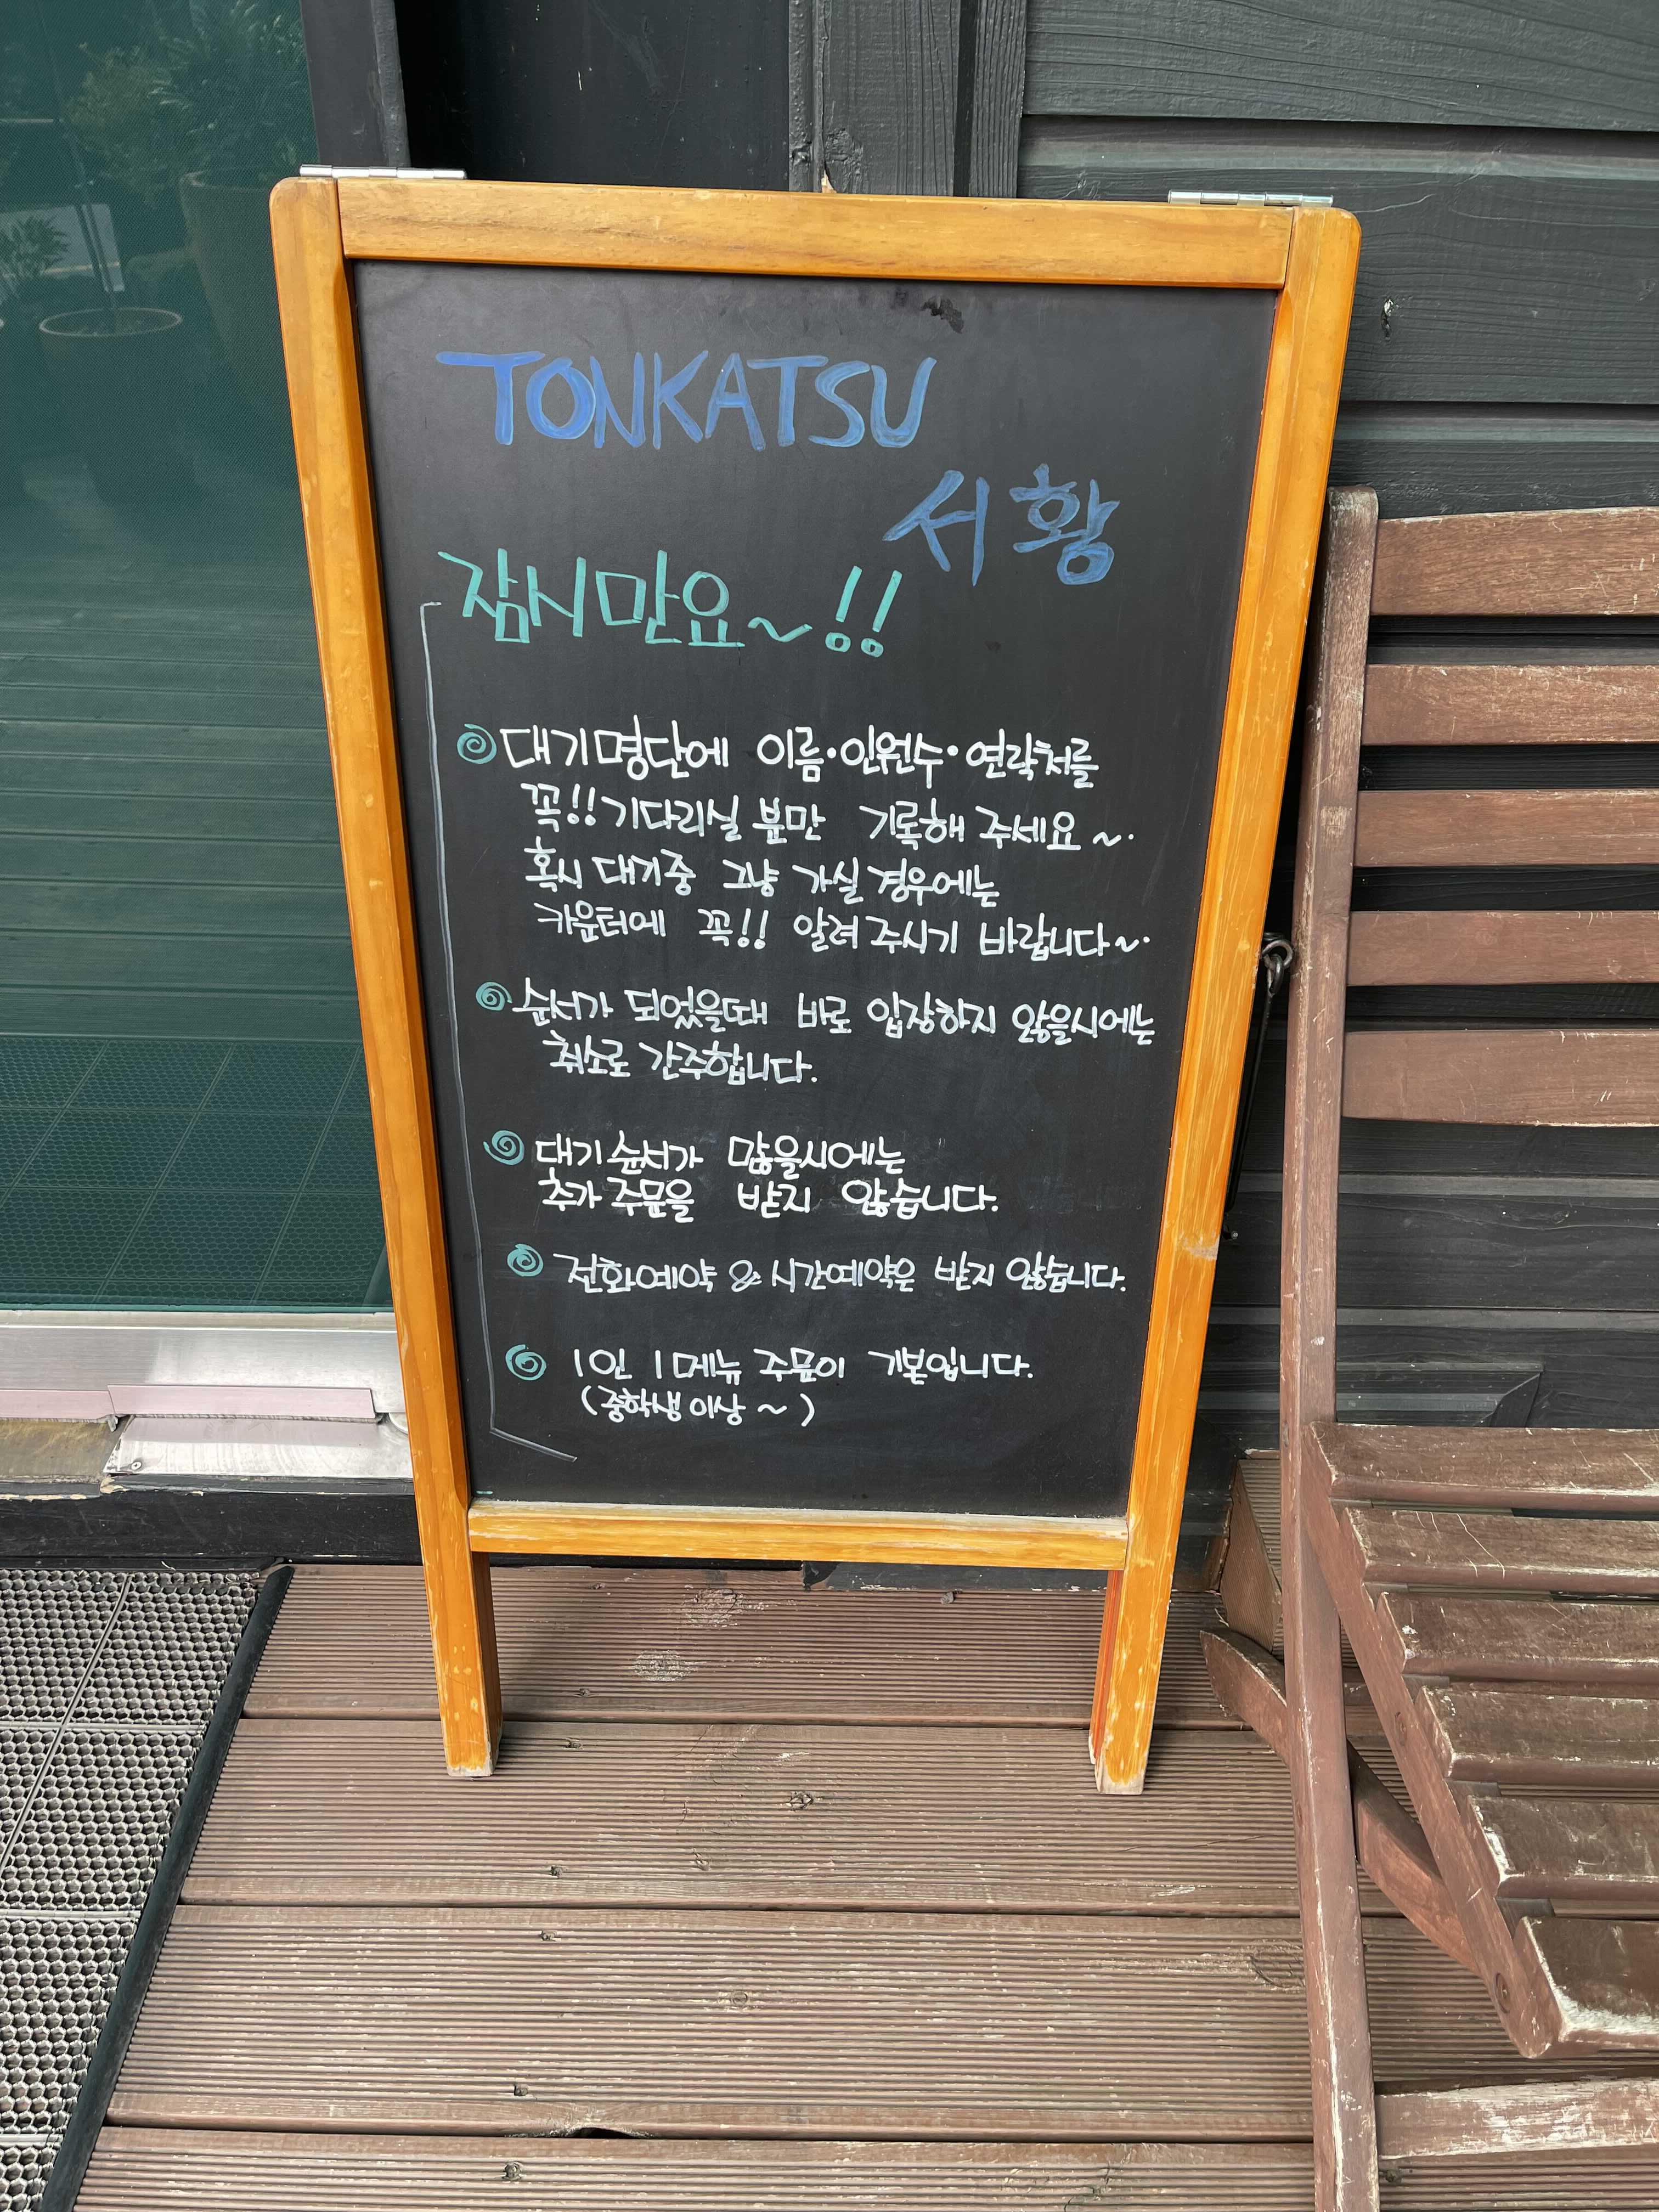 TONKATSU
서황
잠시만요~!!
대기명단에 이름·인원수·연락처를
꼭!! 기다리실 분만 기록해 주세요~.
혹시 대기중 그냥 가실 경우에는
카운터에 꼭!! 알려 주시기 바랍니다~.
순서가 되었을때 바로 입장하지 않을시에는
취소로 간주합니다.
대기 순서가 많을시에는
추가 주문을 받지 않습니다.
전화예약 & 시간예약은 받지 않습니다.
1인 1메뉴 주문이 기본입니다.
(중학생 이상~)